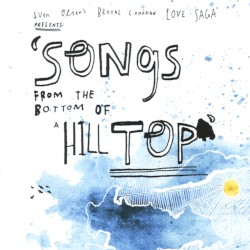 SVEN OLSEN'S BRUTAL CANADIAN LOVE SAGA
PRESENTS:
'SONGS
FROM THE
BOTTOM OF
A
HILLTOP'